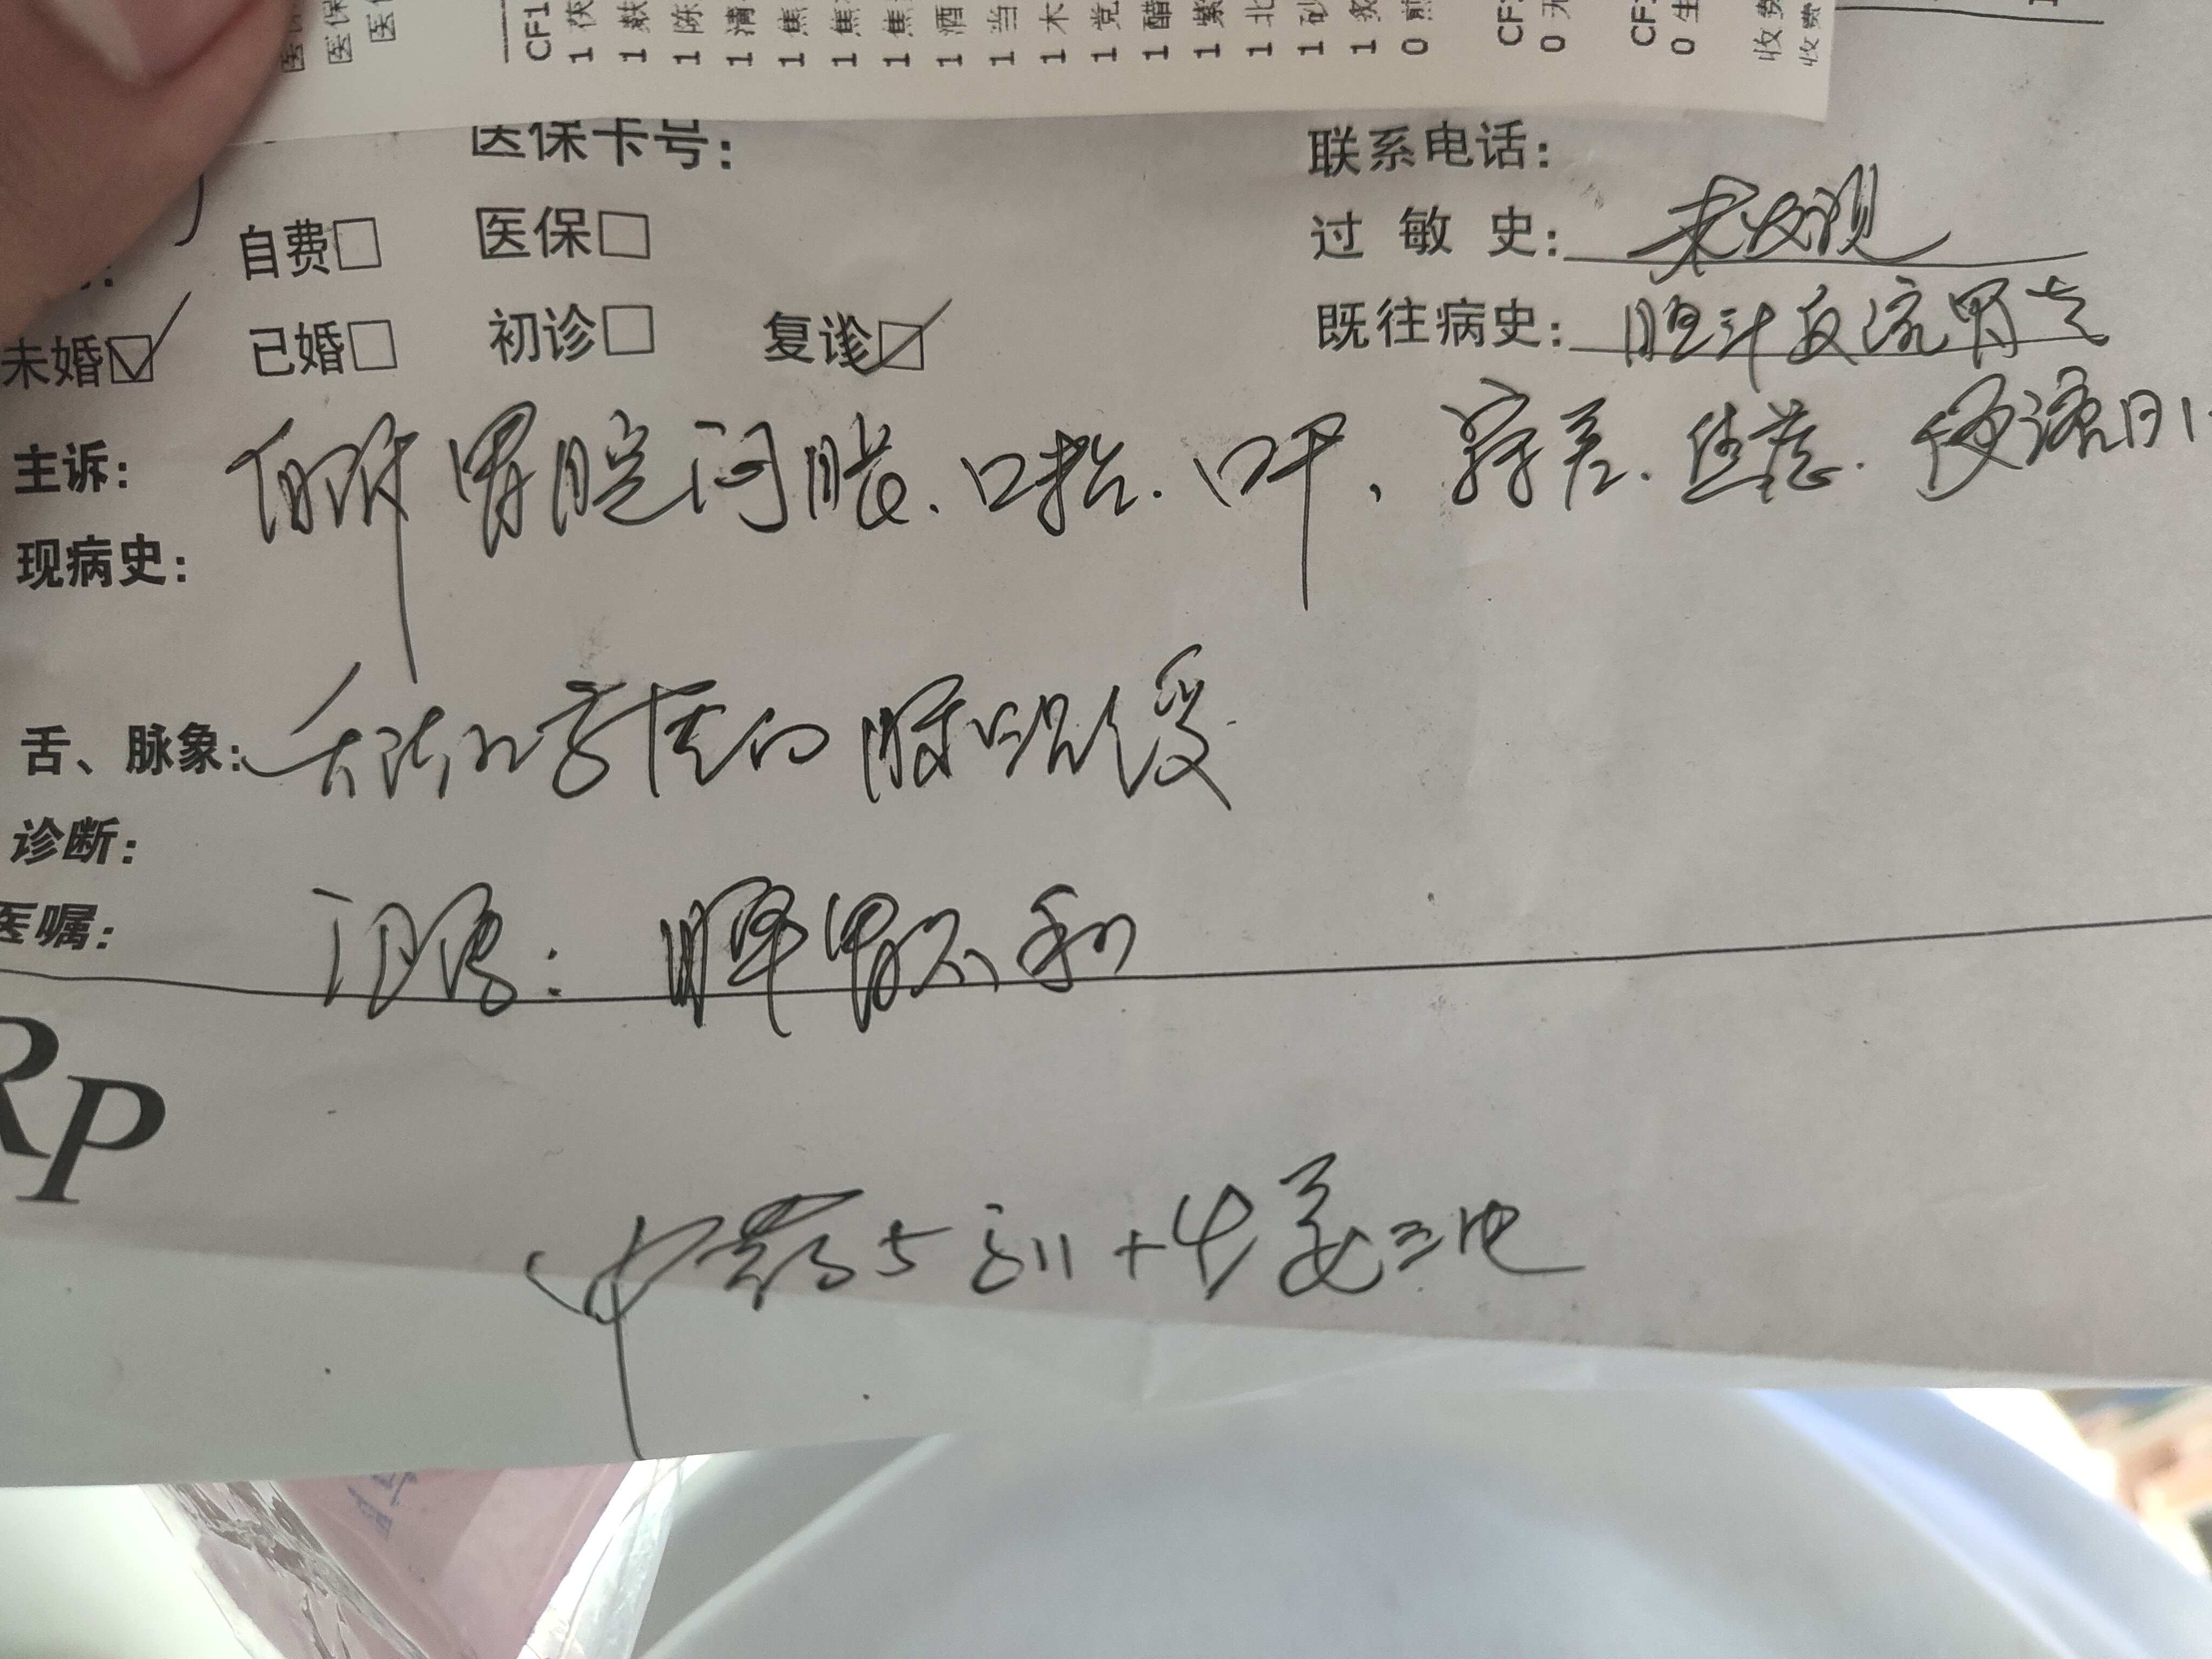 CF1
1 茯
1 麸
1 陈
1 清
1 焦
1 焦
1 焦
1 酒
1 当
1 木
1 党
1 醋
1 紫
1 北
1 砂
1 炙
0 煎
0
0 生
收费
收费
医保卡号: 联系电话:
自费□ 医保□ 过敏史: 未发现
未婚☑ 已婚□ 初诊□ 复诊☑ 既往病史: 胆汁反流胃炎
主诉: 偶胃脘闷胀、口粘、口干、寐差、焦虑、便溏日1
现病史:
舌、脉象: 舌淡红苔薄白 脉沉缓
诊断:
医嘱: 脾胃不和
RP
中药5剂+生姜三